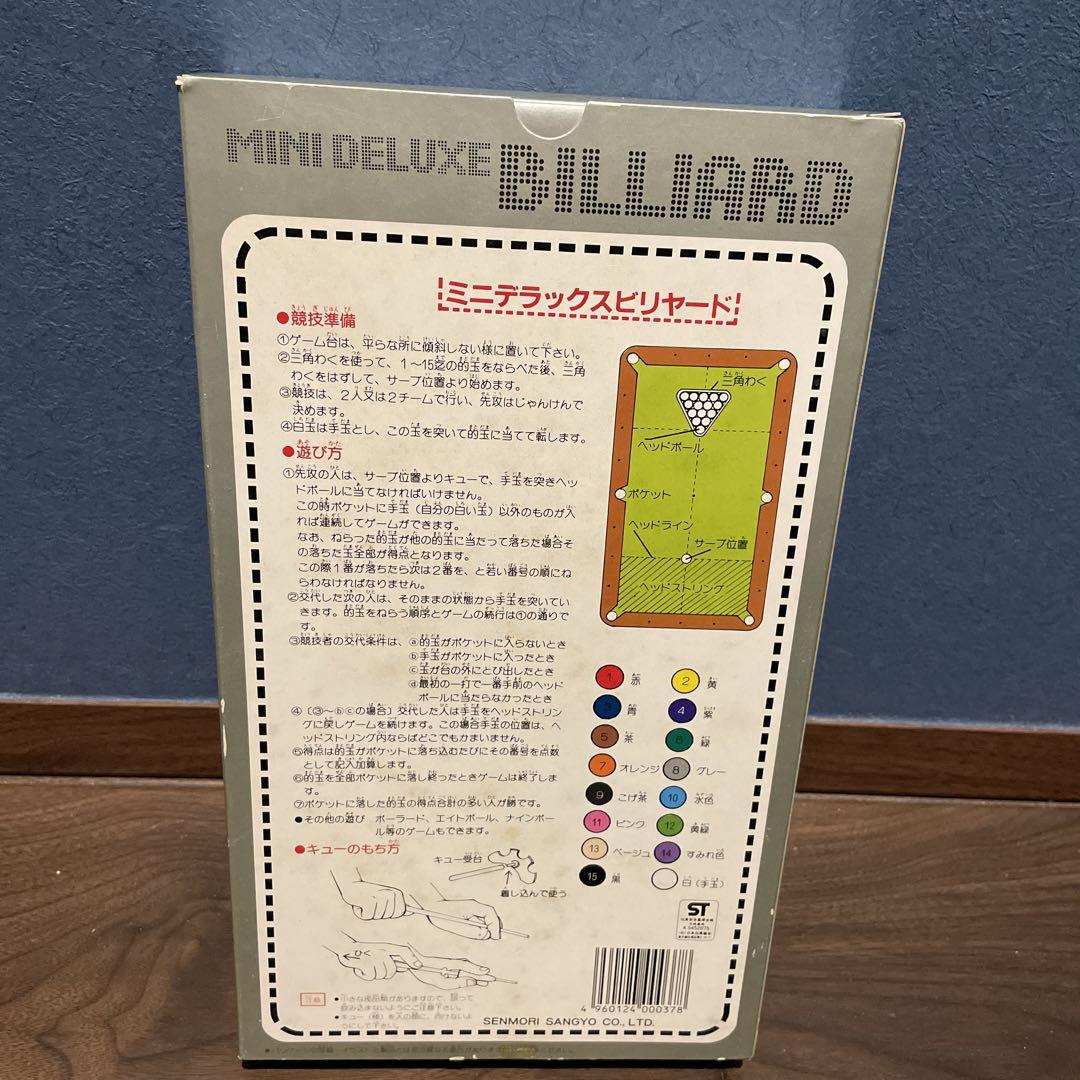 MINI DELUXE BILLIARD
ミニデラックスビリヤード
●競技準備
①ゲーム台は、平らな所に傾斜しない様に置いて下さい。
②三角わくを使って、1～15迄の的玉をならべた後、三角
わくをはずして、サーブ位置より始めます。
③競技は、2人又は2チームで行い、先攻はじゃんけんで
決めます。
④白玉は手玉とし、この玉を突いて的玉に当てて転します。
●遊び方
①先攻の人は、サーブ位置よりキューで、手玉を突きヘッ
ドボールに当てなければいけません。
この時ポケットに手玉(自分の白い玉)以外のものが入
れば連続してゲームができます。
なお、ねらった的玉が他の的玉に当たって落ちた場合そ
の落ちた玉全部が得点となります。
この際1番が落ちたら次は2番を、と若い番号の順にね
らわなければなりません。
②交代した次の人は、そのままの状態から手玉を突いてい
きます。的玉をねらう順序とゲームの続行は①の通りで
す。
③競技者の交代条件は、ⓐ的玉がポケットに入らないとき
ⓑ手玉がポケットに入ったとき
ⓒ玉が台の外にとび出したとき
ⓓ最初の一打で一番手前のヘッド
ボールに当たらなかったとき
④〔③～ⓑⓒの場合〕交代した人は手玉をヘッドストリン
グに戻しゲームを続けます。この場合手玉の位置は、ヘ
ッドストリング内ならばどこでもかまいません。
⑤得点は的玉がポケットに落ち込むたびにその番号を点数
として記入加算します。
⑥的玉を全部ポケットに落し終ったときゲームは終了しま
す。
⑦ポケットに落した的玉の得点合計の多い人が勝です。
●その他の遊び ボーラード、エイトボール、ナインボー
ル等のゲームもできます。
●キューのもち方
キュー受台
差し込んで使う
ひく
三角わく
ヘッドボール
ポケット
ヘッドライン
サーブ位置
ヘッドストリング
1 赤 2 黄
3 青 4 紫
5 茶 6 緑
7 オレンジ 8 グレー
9 こげ茶 10 水色
11 ピンク 12 黄緑
13 ベージュ 14 すみれ色
15 黒 白(手玉)
ST
注意
●小さな部品類がありますので、誤って
飲み込まないようにご注意下さい。
●キュー(棒)を人の顔に、向けないよ
うにして下さい。
4 960124 000378
SENMORI SANGYO CO., LTD.